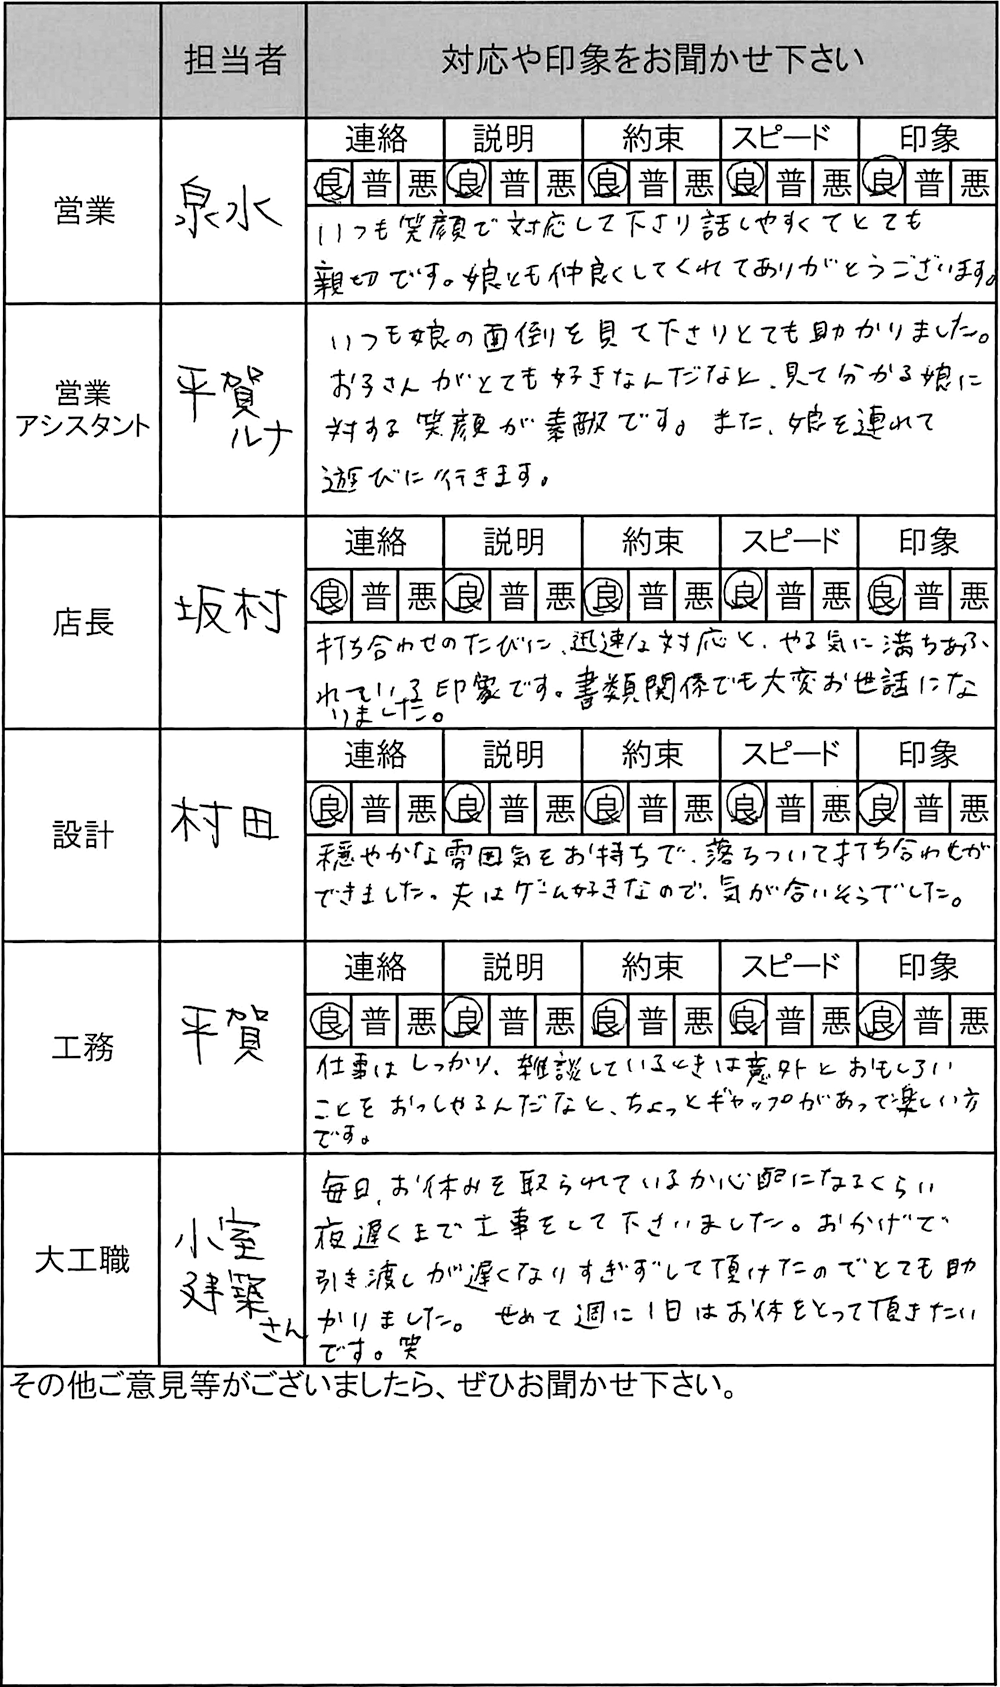 担当者 対応や印象をお聞かせ下さい
連絡 説明 約束 スピード 印象
営業 泉水 良 普 悪 良 普 悪 良 普 悪 良 普 悪 良 普 悪
いつも笑顔で対応して下さり話しやすくてとても
親切です。娘とも仲良くしてくれてありがとうございます。
営業
アシスタント
平賀
ルナ
いつも娘の面倒を見て下さりとても助かりました。
お子さんがとても好きなんだなと、見て分かる娘に
対する笑顔が素敵です。また、娘を連れて
遊びに行きます。
連絡 説明 約束 スピード 印象
店長 坂村 良 普 悪 良 普 悪 良 普 悪 良 普 悪 良 普 悪
打ち合わせのたびに、迅速な対応と、やる気に満ちあふ
れている印象です。書類関係でも大変お世話にな
りました。
連絡 説明 約束 スピード 印象
設計 村田 良 普 悪 良 普 悪 良 普 悪 良 普 悪 良 普 悪
穏やかな雰囲気をお持ちで、落ちついて打ち合わせが
できました。夫はゲーム好きなので、気が合いそうでした。
連絡 説明 約束 スピード 印象
工務 平賀 良 普 悪 良 普 悪 良 普 悪 良 普 悪 良 普 悪
仕事はしっかり、雑談しているときは意外とおもしろい
ことをおっしゃるんだなと、ちょっとギャップがあって楽しい方
です。
大工職
小室
建築さん
毎日、お休みを取られているか心配になるくらい
夜遅くまで工事をして下さいました。おかげで
引き渡しが遅くなりすぎずして頂けたのでとても助
かりました。せめて週に1日はお休をとって頂きたい
です。笑
その他ご意見等がございましたら、ぜひお聞かせ下さい。